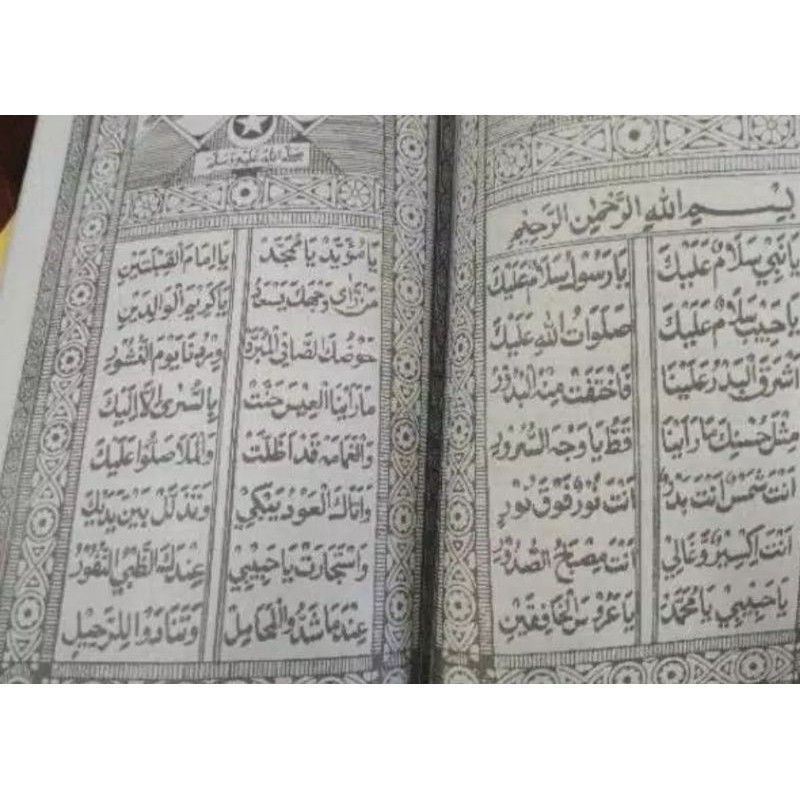 بِسْمِ اللهِ الرَّحْمٰنِ الرَّحِيْمِ
يَا نَبِيْ سَلَامٌ عَلَيْكَ يَا رَسُوْلْ سَلَامٌ عَلَيْكَ
يَا حَبِيْبْ سَلَامٌ عَلَيْكَ صَلَوَاتُ اللهِ عَلَيْكَ
اَشْرَقَ الْبَدْرُ عَلَيْنَا فَاخْتَفَتْ مِنْهُ الْبُدُوْرُ
مِثْلَ حُسْنِكْ مَا رَاَيْنَا قَطُّ يَا وَجْهَ السُّرُوْرِ
اَنْتَ شَمْسٌ اَنْتَ بَدْرٌ اَنْتَ نُوْرٌ فَوْقَ نُوْرٍ
اَنْتَ اِكْسِيْرٌ وَّغَالِيْ اَنْتَ مِصْبَاحُ الصُّدُوْرِ
يَا حَبِيْبِيْ يَا مُحَمَّدْ يَا عَرُوْسَ الْخَافِقَيْنِ
صلى الله عليه وسلم
يَا مُؤَيَّدْ يَا مُمَجَّدْ يَا اِمَامَ الْقِبْلَتَيْنِ
مَنْ رَاٰى وَجْهَكَ يَسْعَدْ يَا كَرِيْمَ الْوَالِدَيْنِ
حَوْضُكَ الصَّافِى الْمُبَرَّدْ وِرْدُنَا يَوْمَ النُّشُوْرِ
مَا رَاَيْنَا الْعِيْسَ حَنَّتْ بِالسُّرٰى اِلَّا اِلَيْكَ
وَالْغَمَامَه قَدْ اَظَلَّتْ وَالْمَلَا صَلُّوْا عَلَيْكَ
وَاَتَاكَ الْعَوْدُ يَبْكِيْ وَتَذَلَّلْ بَيْنَ يَدَيْكَ
وَاسْتَجَارَتْ يَا حَبِيْبِيْ عِنْدَكَ الظَّبْيُ النُّفُوْرُ
عِنْدَمَا شَدُّوا الْمَحَامِلْ وَتَنَادَوْا لِلرَّحِيْلِ